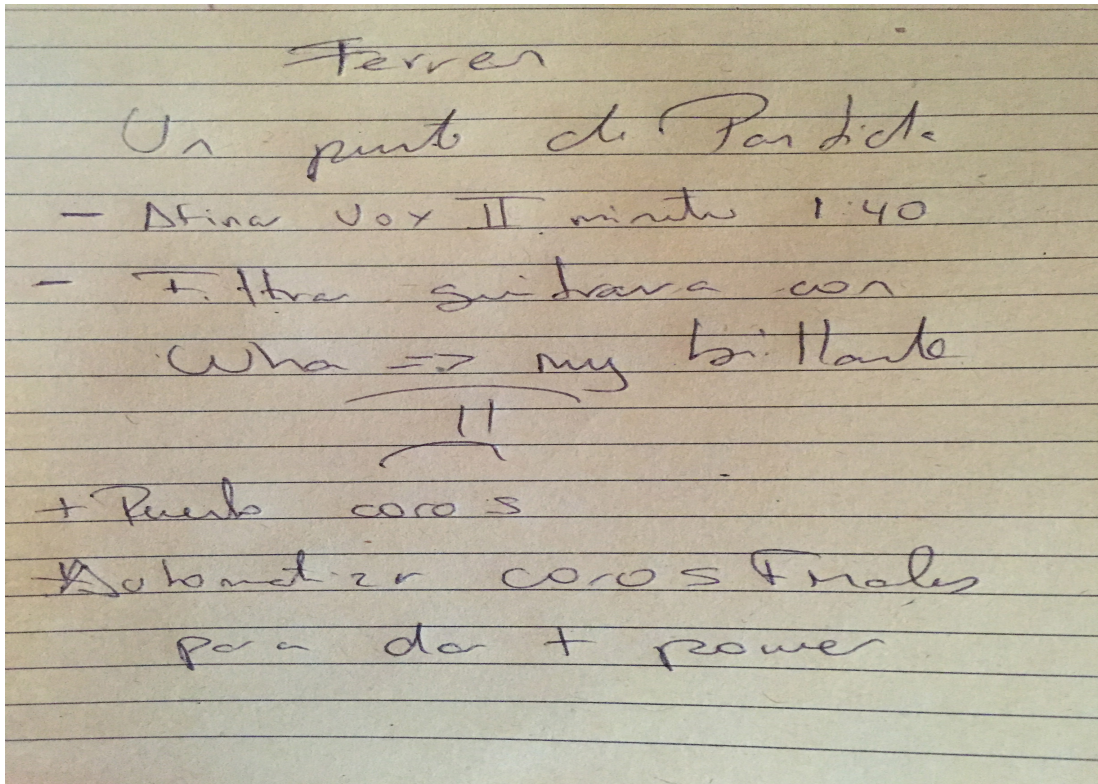 Ferran
Un punto de Partida
- Afinar Vox II minuto 1:40
- Filtrar guitarra con
Wha => muy brillante
+ coros
Automatizar coros Finales
para dar + power